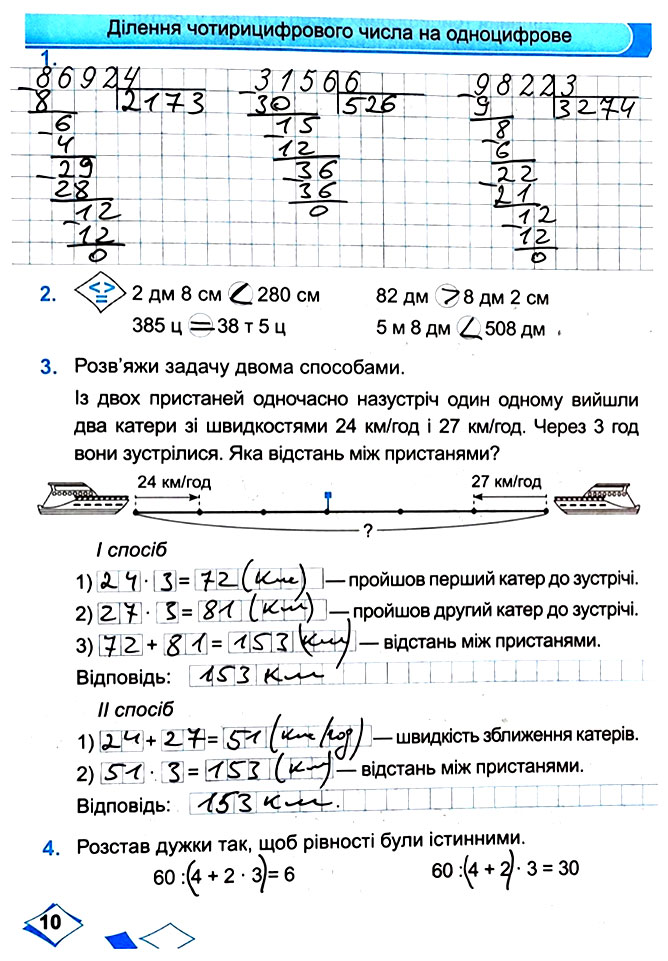 Ділення чотирицифрового числа на одноцифрове
1.
8692 4 3156 6 9822 3
- 8 2173 - 30 526 - 9 3274
- 6 - 15 - 8
4 12 6
- 29 - 36 - 22
28 36 21
- 12 0 - 12
12 12
0 0
2. < > = 2 дм 8 см < 280 см 82 дм > 8 дм 2 см
385 ц = 38 т 5 ц 5 м 8 дм < 508 дм
3. Розв’яжи задачу двома способами.
Із двох пристаней одночасно назустріч один одному вийшли
два катери зі швидкостями 24 км/год і 27 км/год. Через 3 год
вони зустрілися. Яка відстань між пристанями?
24 км/год 27 км/год
?
І спосіб
1) 24 · 3 = 72 (км) — пройшов перший катер до зустрічі.
2) 27 · 3 = 81 (км) — пройшов другий катер до зустрічі.
3) 72 + 81 = 153 (км) — відстань між пристанями.
Відповідь: 153 км
ІІ спосіб
1) 24 + 27 = 51 (км/год) — швидкість зближення катерів.
2) 51 · 3 = 153 (км) — відстань між пристанями.
Відповідь: 153 км.
4. Розстав дужки так, щоб рівності були істинними.
60 :(4 + 2 · 3)= 6 60 :(4 + 2) · 3 = 30
10